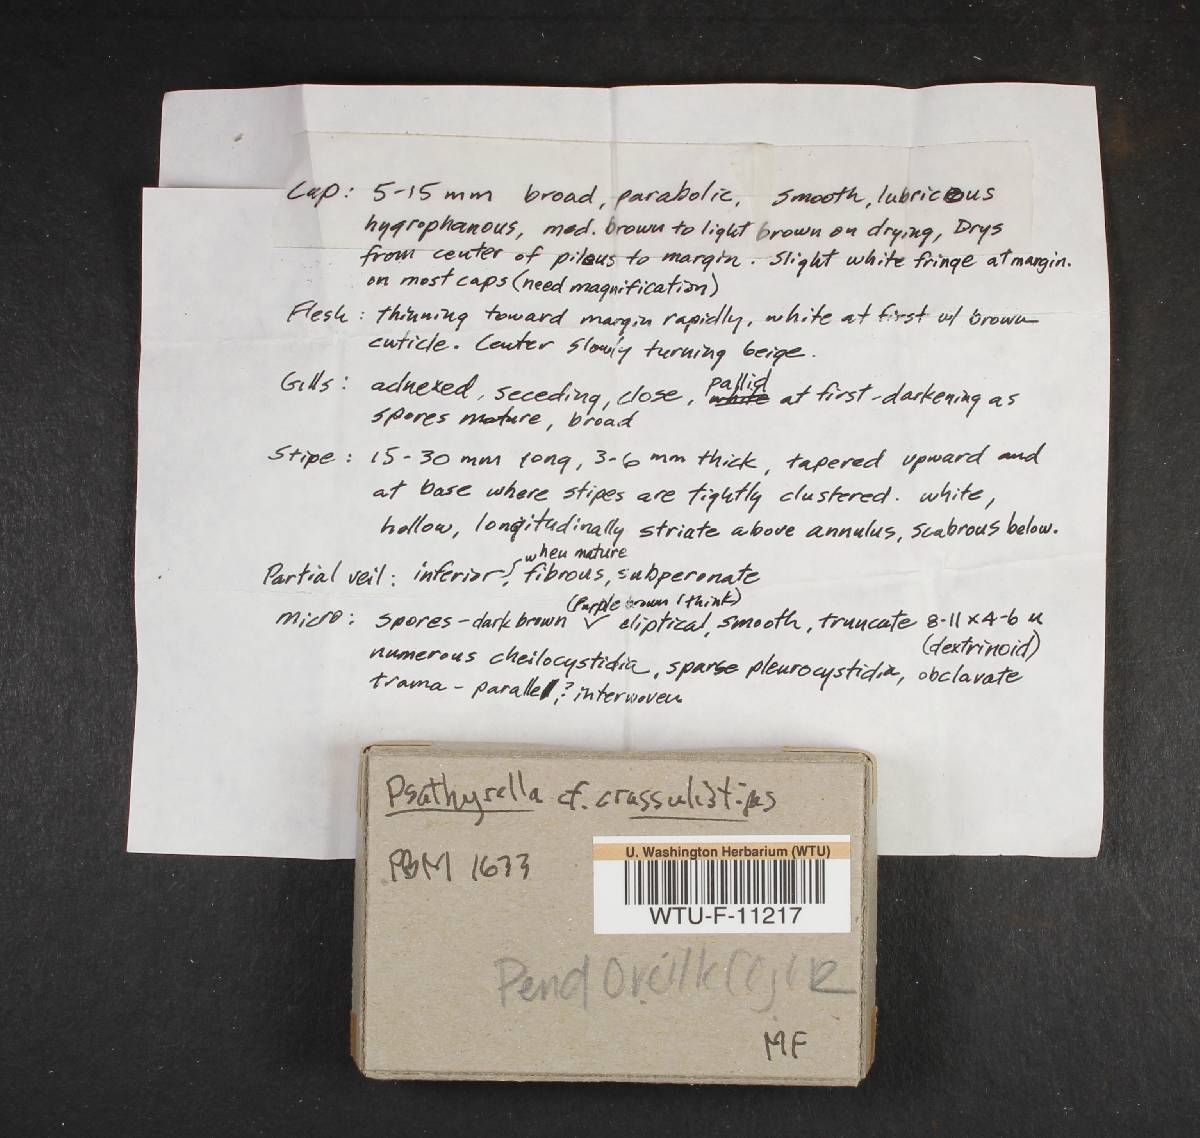 Cap: 5-15 mm broad, parabolic, smooth, lubricous
hygrophanous, med. brown to light brown on drying, Drys
from center of pileus to margin. Slight white fringe at margin.
on most caps (need magnification)
Flesh: thinning toward margin rapidly, white at first w/ brown
cuticle. Center slowly turning beige.
Gills: adnexed, seceding, close, white pallid at first - darkening as
spores mature, broad
Stipe: 15-30 mm long, 3-6 mm thick, tapered upward and
at base where stipes are tightly clustered. white,
hollow, longitudinally striate above annulus, scabrous below.
when mature
Partial veil: inferior, fibrous, subperonate
(Purple brown I think)
Micro: spores - dark brown eliptical, smooth, truncate 8-11 x 4-6 u
(dextrinoid)
numerous cheilocystidia, sparse pleurocystidia, obclavate
trama - parallel,? interwoven
Psathyrella cf. crassulistipes
PBM 1633
U. Washington Herbarium (WTU)
WTU-F-11217
Pend Oreille
MF